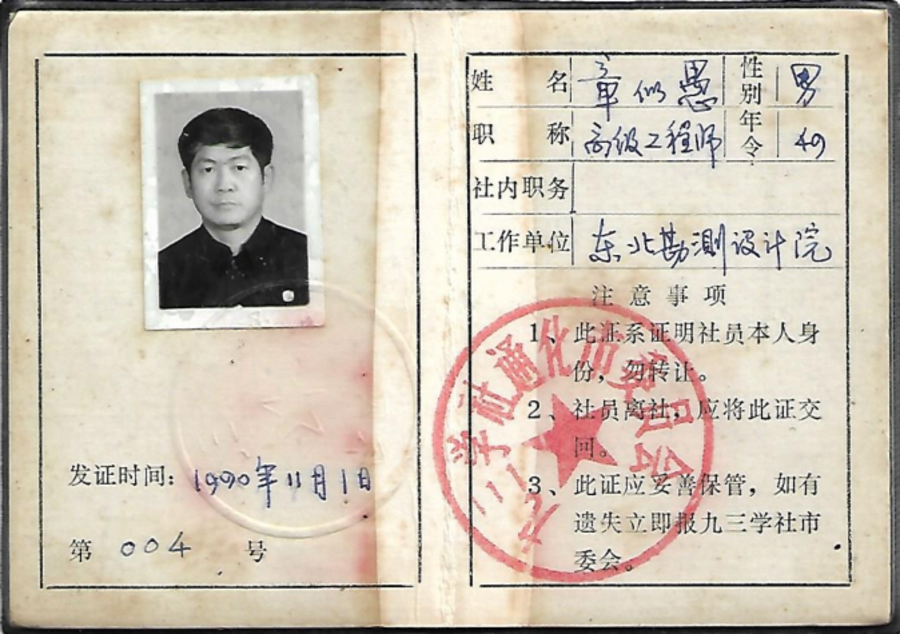 发证时间：1990年11月1日
第 004 号
姓名 章似愚 性别 男
职称 高级工程师 年令 49
社内职务
工作单位 东北勘测设计院
注意事项
1、此证系证明社员本人身
份，勿转让。
2、社员离社，应将此证交
回。
3、此证应妥善保管，如有
遗失立即报九三学社市
委会。
九三学社通化市委员会